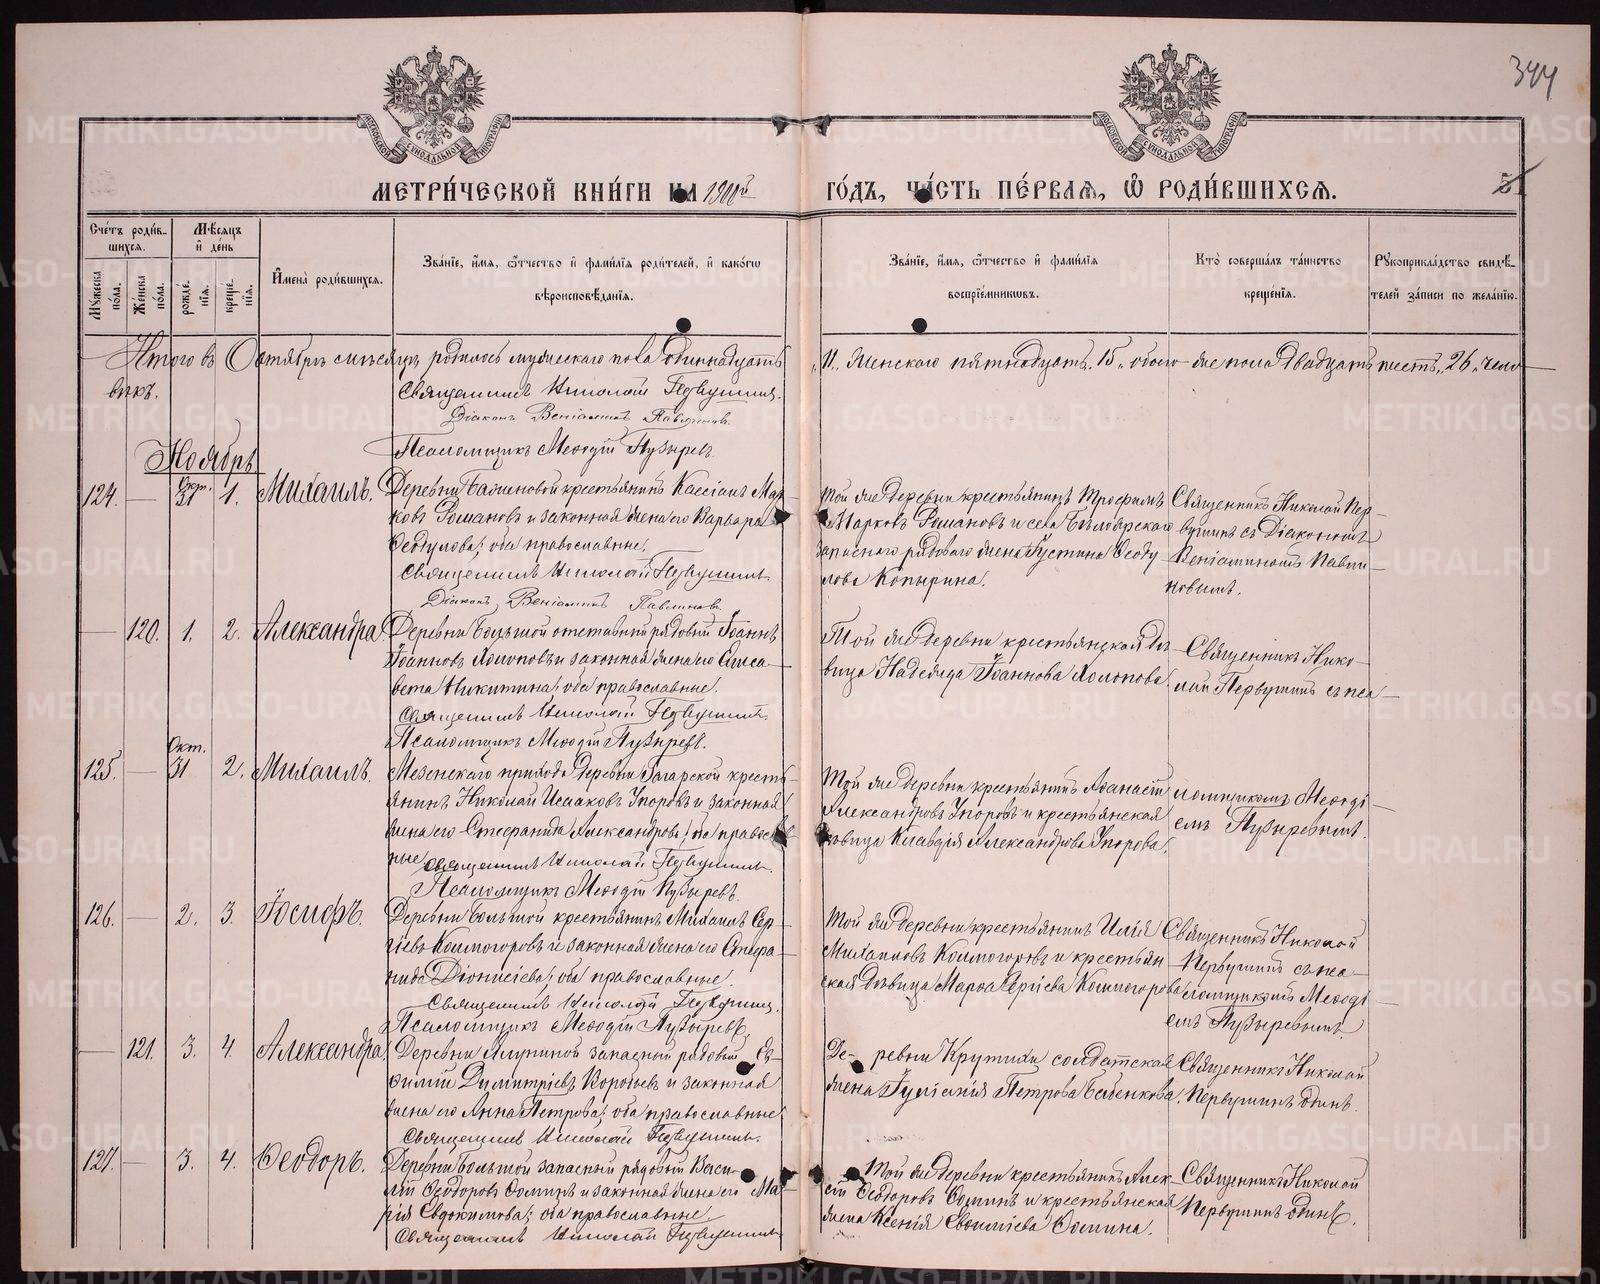 344
МОСКОВСКОЙ СѴНОДАЛЬНОЙ ТИПОГРАФІИ
МОСКОВСКОЙ СѴНОДАЛЬНОЙ ТИПОГРАФІИ
МЕТРИ́ЧЕСКОЙ КНИ́ГИ НА 1900й ГО́ДЪ, ЧА́СТЬ ПЕ́РВАЯ, Ѡ҆ РОДИ́ВШИХСЯ.
Сче́тъ роди́в-
шихся.
Мꙋжеска
по́ла.
Же́нска
по́ла.
Мѣ́сяцъ
и҆ де́нь
рожде́-
нїя.
креще́-
нїя.
И҆мена̀ роди́вшихся.
Зва́нїе, и҆́мя, ѻ҆́тчество и҆ фами́лїя роди́телей, и҆ како́гѡ
вѣроисповѣ́данїя.
Зва́нїе, и҆́мя, ѻ҆́тчество и҆ фами́лїя
воспрїе́мникѡвъ.
Кто̀ соверша́лъ та́инство
креще́нїя.
Рꙋкоприкла́дство свидѣ́-
телей за́писи по жела́нїю.
Итого въ Октябрѣ мѣсяцѣ родилось мужескаго пола одиннадцать „11„ женскаго пятнадцать „15„ обоего же пола двадцать шесть „26„ чело-
вѣкъ.
Священникъ Николай Первушинъ.
Діаконъ Веніаминъ Павлиновъ.
Псаломщикъ Меѳодій Пузыревъ.
Ноябрь
124. — Окт. 31 1. Михаилъ. Деревни Баженовой крестьянинъ Кассіанъ Мар-
ковъ Романовъ и законная жена его Варвара
Ѳеодулова; оба православные.
Священникъ Николай Первушинъ.
Діаконъ Веніаминъ Павлиновъ.
Той же деревни крестьянинъ Трофимъ
Марковъ Романовъ и села Бѣлоярскаго
запаснаго рядоваго жена Іустина Ѳеоду-
лова Копырина.
Священникъ Николай Пер-
вушинъ съ Діакономъ
Веніаминомъ Павли-
новымъ.
— 120. 1. 2. Александра. Деревни Большой отставный рядовый Іоаннъ
Іоанновъ Холоповъ и законная жена его Елиса-
вета Никитина; оба православные.
Священникъ Николай Первушинъ.
Псаломщикъ Меѳодій Пузыревъ.
Той же деревни крестьянская дѣ-
вица Надежда Іоаннова Холопова.
Священникъ Нико-
лай Первушинъ съ пса-
125. — Окт. 31 2. Михаилъ. Мезенскаго прихода деревни Гагарской кресть-
янинъ Николай Исааковъ Упоровъ и законная
жена его Стефанида Александрова; оба православ-
ные. Священникъ Николай Первушинъ.
Псаломщикъ Меѳодій Пузыревъ.
Той же деревни крестьянинъ Аѳанасій
Александровъ Упоровъ и крестьянская
дѣвица Клавдія Александрова Упорова.
ломщикомъ Меѳоді-
емъ Пузыревымъ.
126. — 2. 3. Іосифъ. Деревни Большой крестьянинъ Михаилъ Сер-
гіевъ Колмогоровъ и законная жена его Стефа-
нида Діонисіева; оба православные.
Священникъ Николай Первушинъ.
Псаломщикъ Меѳодій Пузыревъ.
Той же деревни крестьянинъ Илія
Михаиловъ Колмогоровъ и крестьян-
ская дѣвица Марѳа Сергіева Колмогорова.
Священникъ Николай
Первушинъ съ пса-
ломщикомъ Меѳоді-
емъ Пузыревымъ.
— 121. 3. 4. Александра. Деревни запасный рядовый Ев-
ѳимій Димитріевъ Воробьевъ и законная
жена его Анна Петрова; оба православные.
Священникъ Николай Первушинъ.
Де- ревни Крутихи солдатская
жена Іуліанія Петрова Бабенкова.
Священникъ Николай
Первушинъ одинъ.
127. — 3. 4. Ѳеодоръ. Деревни Большой запасный рядовый Васи-
лій Ѳеодоровъ Ѳоминъ и законная жена его Ма-
рія Евдокимова; оба православные
Священникъ Николай Первушинъ
Той же деревни крестьянинъ Алек-
сій Ѳеодоровъ Ѳоминъ и крестьянская
жена Ксенія Ѳомина.
Священникъ Николай
Первушинъ одинъ.
METRIKI.GASO-URAL.RU